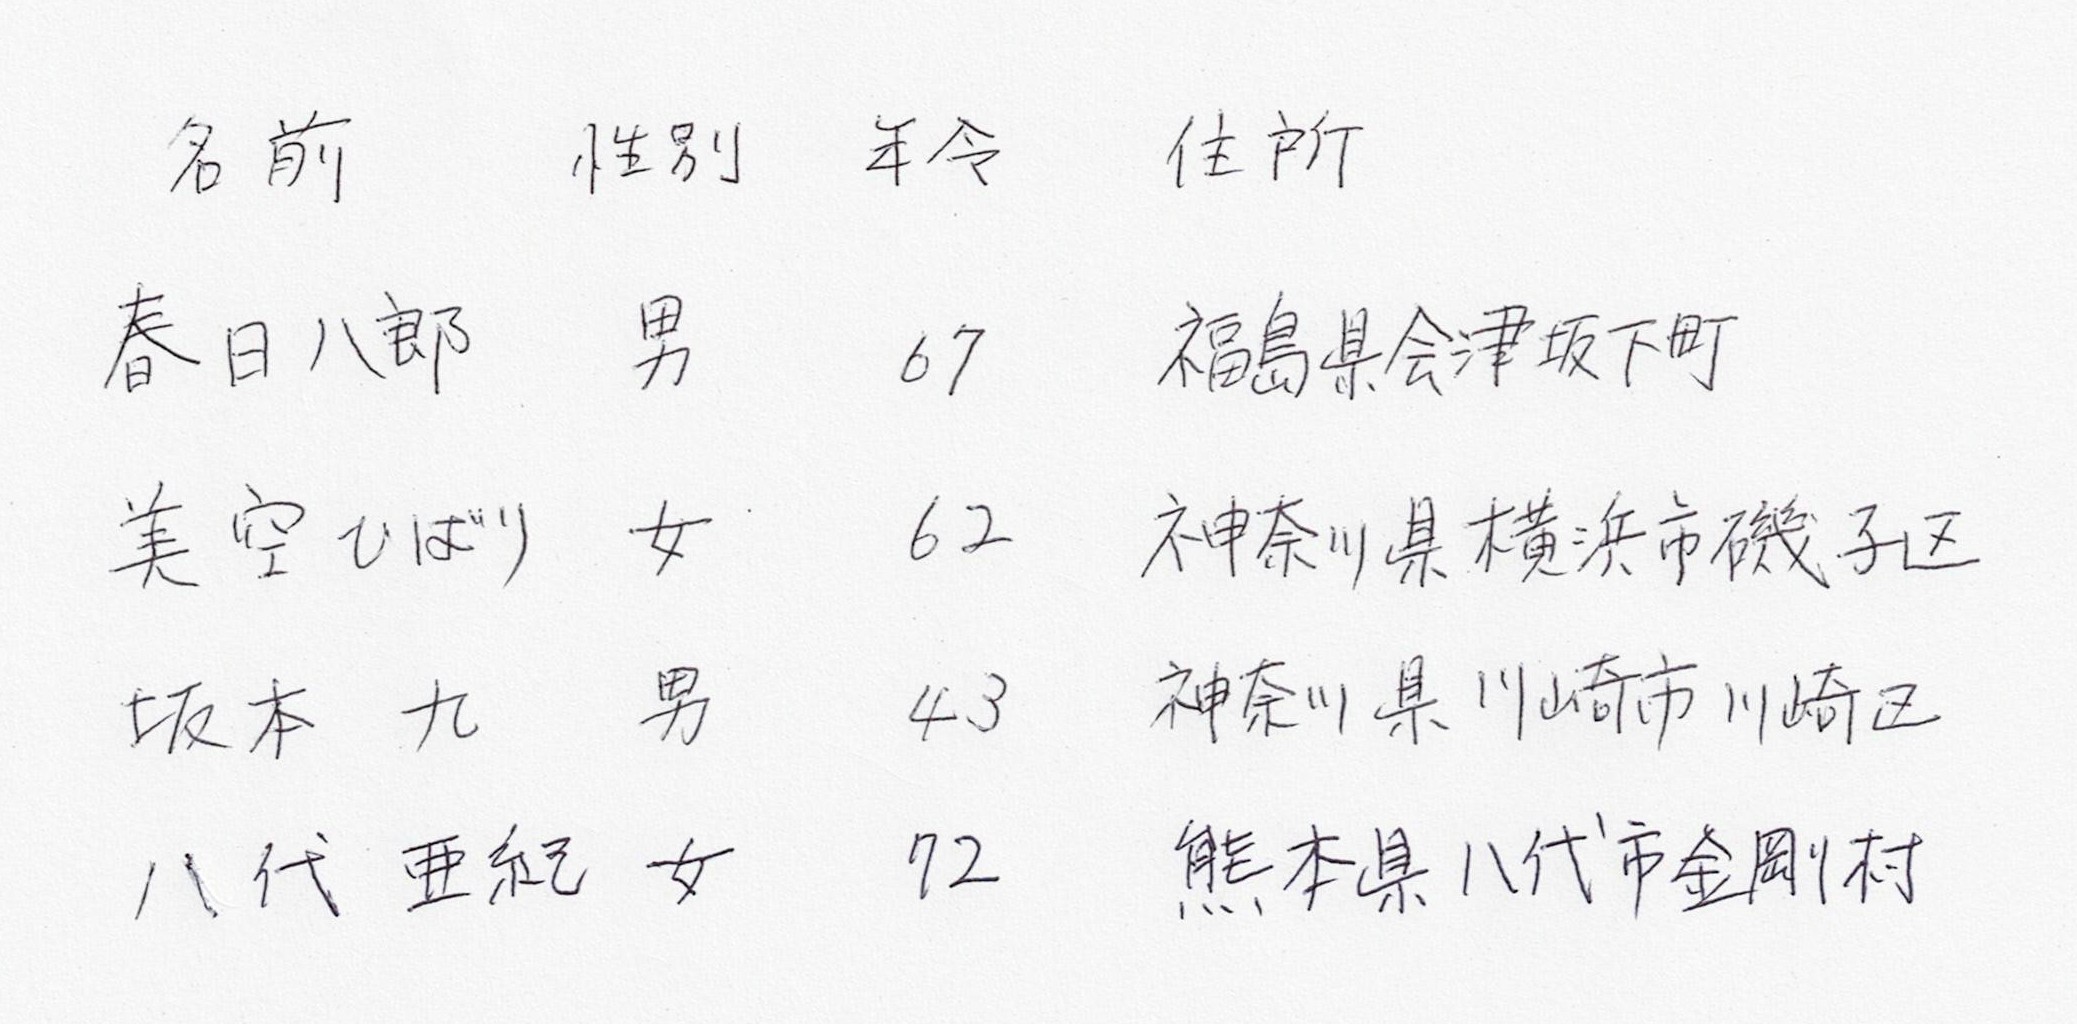 名前 性別 年令 住所
春日八郎 男 67 福島県会津坂下町
美空ひばり 女 62 神奈川県横浜市磯子区
坂本 九 男 43 神奈川県川崎市川崎区
八代 亜紀 女 72 熊本県八代市金剛村